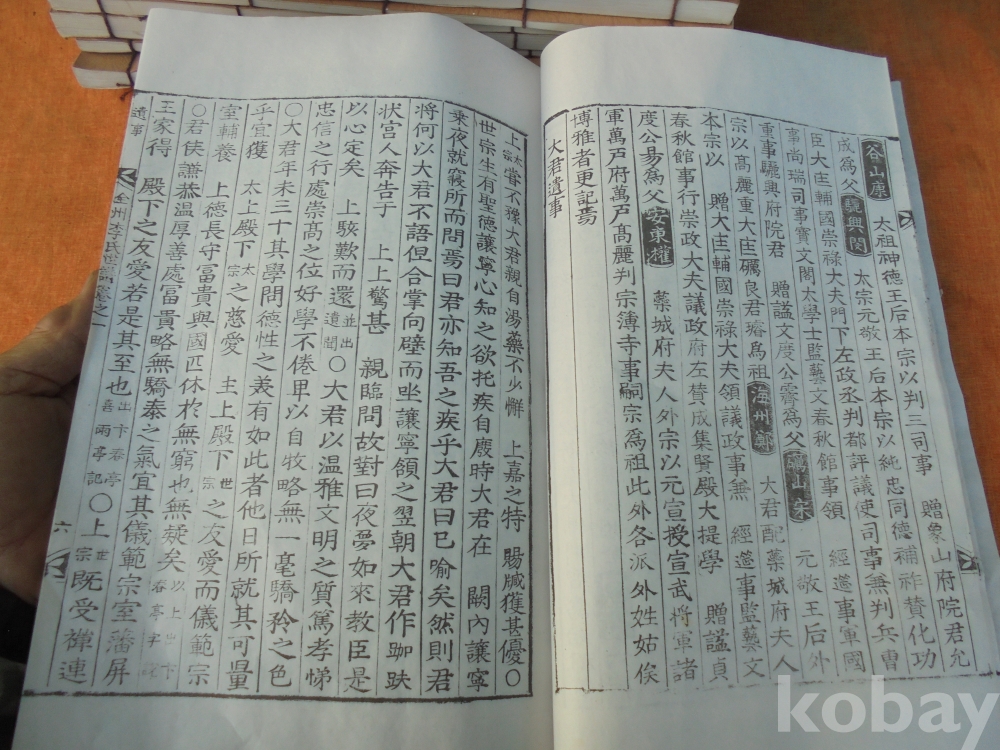 谷山康 太祖神德王后本宗以判三司事 贈象山府院君允
成爲父驪興閔 太宗元敬王后本宗以純忠同德補祚贊化功
臣大匡輔國崇祿大夫門下左政丞判都評議使司事兼判兵曹
事尚瑞司事寶文閣太學士監藝文春秋館事領 經筵事軍國
重事驪興府院君 贈謚文度公霽爲父礪山宋 元敬王后外
宗以高麗重大匡礪良君璿爲祖海州鄭 大君配藥城府夫人
本宗以 贈大匡輔國崇祿大夫領議政事兼 經筵事監藝文
春秋館事行崇政大夫議政府左贊成集賢殿大提學 贈謚貞
度公易爲父安東權 藥城府夫人外宗以元宣授宣武將軍諸
軍萬戶府萬戶高麗判宗簿寺事嗣宗爲祖此外各派外姓姑俟
博雅者更記焉
大君遺事
上太宗嘗不豫大君親自湯藥不少懈 上嘉之特 賜臧獲甚優○
世宗生有聖德讓寧心知之欲托疾自廢時大君在 闕內讓寧
乘夜就寢所而問焉曰君亦知吾之疾乎大君曰已喻矣然則君
將何以大君不語但合掌向壁而坐讓寧領之翌朝大君作跏趺
狀宮人奔告于 上上驚甚 親臨問故對曰夜夢如來教臣是
以心定矣 上駭歎而還並出遺聞○大君以溫雅文明之質篤孝悌
忠信之行處崇高之位好學不倦卑以自牧略無一毫驕矜之色
○大君年未三十其學問德性之兼有如此者他日所就其可量
乎宜獲 太上殿下太宗之慈愛 主上殿下世宗之友愛而儀範宗
室輔養 上德長守富貴與國匹休於無窮也無疑矣以上出卞春亭字說
○君侯謙恭溫厚善處富貴略無驕泰之氣宜其儀範宗室藩屏
王家得 殿下之友愛若是其至也出卞春亭喜雨亭記○上世宗既受禪連
遺事
全州李氏世譜卷之一
六
kobay